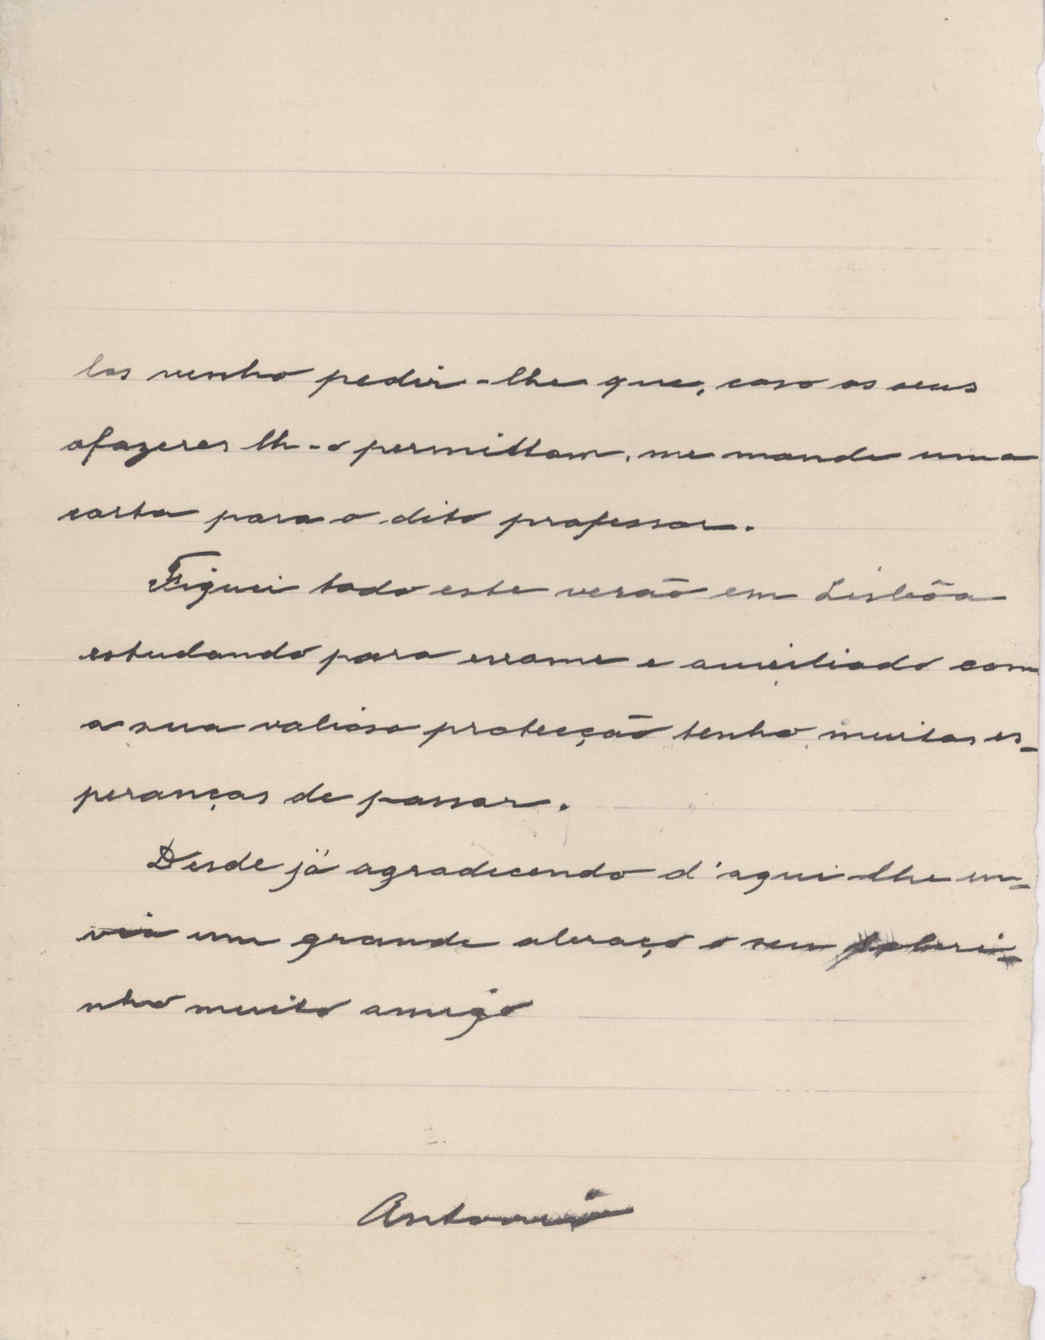 los venho pedir-lhe que, caso os seus
afazeres lh-o permittam, me mande uma
carta para o dito professor.
Fiquei todo este verão em Lisbôa
estudando para exame e auxiliado com
a sua valiosa protecção tenho muitas es-
peranças de passar.
Desde já agradecendo d'aqui lhe en-
via um grande abraço o seu sobri-
nho muito amigo
Antonio